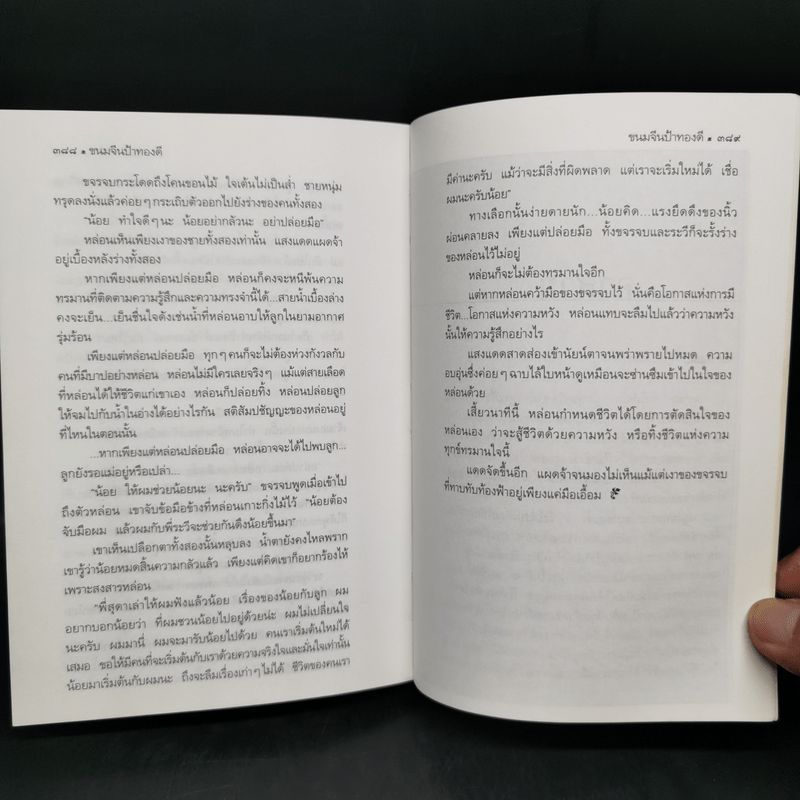 ๓๘๘ • ขนมจีนป้าทองดี
ขจรจบกระโดดถึงโคนขอนไม้ ใจเต้นไม่เป็นส่ำ ชายหนุ่ม
ทรุดลงนั่งแล้วค่อยๆกระเถิบตัวออกไปยังร่างของคนทั้งสอง
“น้อย ทำใจดีๆนะ น้อยอย่ากลัวนะ อย่าปล่อยมือ”
หล่อนเห็นเพียงเงาของชายทั้งสองเท่านั้น แสงแดดแผดจ้า
อยู่เบื้องหลังร่างทั้งสอง
หากเพียงแต่หล่อนปล่อยมือ หล่อนก็คงจะหนีพ้นความ
ทรมานที่ติดตามความรู้สึกและความทรงจำนี้ได้...สายน้ำเบื้องล่าง
คงจะเย็น...เย็นชื่นใจดังเช่นน้ำที่หล่อนอาบให้ลูกในยามอากาศ
รุ่มร้อน
เพียงแต่หล่อนปล่อยมือ ทุกๆคนก็จะไม่ต้องห่วงกังวลกับ
คนที่มีบาปอย่างหล่อน หล่อนไม่มีใครเลยจริงๆ แม้แต่สายเลือด
ที่หล่อนได้ให้ชีวิตแก่เขาเอง หล่อนก็ปล่อยทิ้ง หล่อนปล่อยลูก
ให้จมไปกับน้ำในอ่างได้อย่างไรกัน สติสัมปชัญญะของหล่อนอยู่
ที่ไหนในตอนนั้น
...หากเพียงแต่หล่อนปล่อยมือ หล่อนอาจจะได้ไปพบลูก...
ลูกยังรอแม่อยู่หรือเปล่า...
“น้อย ให้ผมช่วยน้อยนะ นะครับ” ขจรจบพูดเมื่อเข้าไป
ถึงตัวหล่อน เขาจับข้อมือข้างที่หล่อนเกาะกิ่งไม้ไว้ “น้อยต้อง
จับมือผม แล้วผมกับพี่ระวีจะช่วยกันดึงน้อยขึ้นมา”
เขาเห็นเปลือกตาทั้งสองนั้นหลุบลง น้ำตายังคงไหลพราก
เขารู้ว่าน้อยหมดสิ้นความกลัวแล้ว เพียงแต่คิดเขาก็อยากร้องไห้
เพราะสงสารหล่อน
“พี่สุดาเล่าให้ผมฟังแล้วน้อย เรื่องของน้อยกับลูก ผม
อยากบอกน้อยว่า ที่ผมชวนน้อยไปอยู่ด้วยน่ะ ผมไม่เปลี่ยนใจ
นะครับ ผมมานี่ ผมจะมารับน้อยไปด้วย คนเราเริ่มต้นใหม่ได้
เสมอ ขอให้มีคนที่จะเริ่มต้นกับเราด้วยความจริงใจและมั่นใจเท่านั้น
น้อยมาเริ่มต้นกับผมนะ ถึงจะลืมเรื่องเก่าๆไม่ได้ ชีวิตของคนเรา
ขนมจีนป้าทองดี • ๓๘๙
มีค่านะครับ แม้ว่าจะมีสิ่งที่ผิดพลาด แต่เราจะเริ่มใหม่ได้ เชื่อ
ผมนะครับน้อย”
ทางเลือกนั้นง่ายดายนัก...น้อยคิด...แรงยึดดึงของนิ้ว
ผ่อนคลายลง เพียงแต่ปล่อยมือ ทั้งขจรจบและระวีก็จะรั้งร่าง
ของหล่อนไว้ไม่อยู่
หล่อนก็จะไม่ต้องทรมานใจอีก
แต่หากหล่อนคว้ามือของขจรจบไว้ นั่นคือโอกาสแห่งการมี
ชีวิต...โอกาสแห่งความหวัง หล่อนแทบจะลืมไปแล้วว่าความหวัง
นั้นให้ความรู้สึกอย่างไร
แสงแดดสาดส่องเข้านัยน์ตาจนพร่าพรายไปหมด ความ
อบอุ่นซึ่งค่อยๆฉาบไล้ใบหน้าดูเหมือนจะซ่านซึมเข้าไปในใจของ
หล่อนด้วย
เสี้ยวนาทีนี้ หล่อนกำหนดชีวิตได้โดยการตัดสินใจของ
หล่อนเอง ว่าจะสู้ชีวิตด้วยความหวัง หรือทิ้งชีวิตแห่งความ
ทุกข์ทรมานใจนี้
แดดจัดขึ้นอีก แผดจ้าจนมองไม่เห็นแม้แต่เงาของขจรจบ
ที่ทาบทับท้องฟ้าอยู่เพียงแค่มือเอื้อม